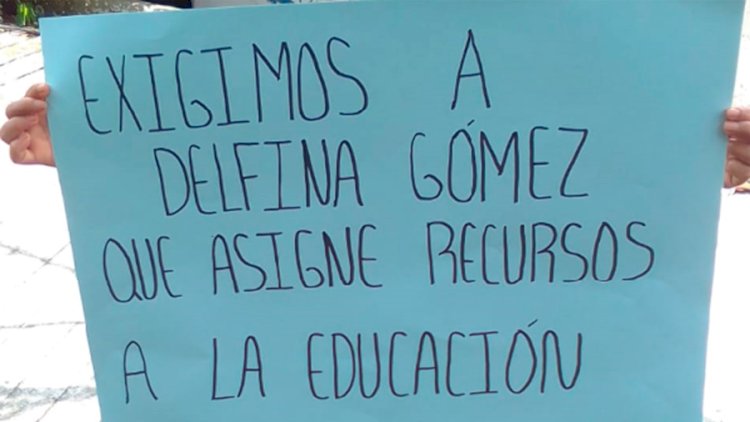 EXIGIMOS A
DELFINA GÓMEZ
QUE ASIGNE RECURSOS
A LA EDUCACIÓN